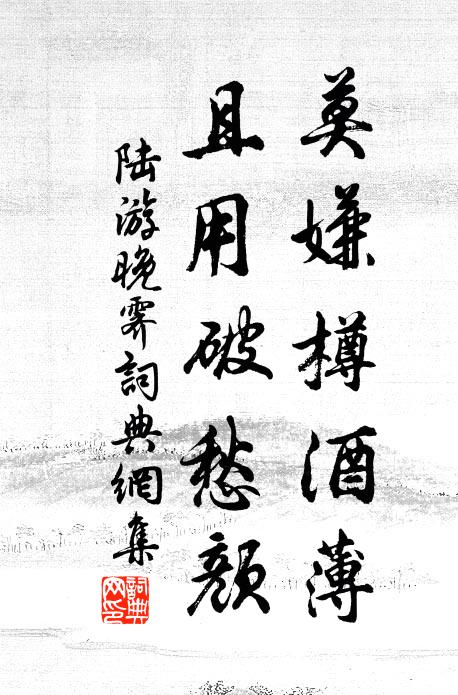 莫嫌樽酒薄
且用破愁顏
陸游晚霽詞典網集
詞典网印